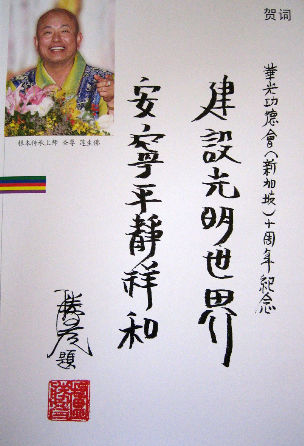 贺词
華光功德會(新加坡)十周年紀念
建設光明世界
安寧平靜祥和
勝彥題
根本传承上师 圣尊 莲生佛